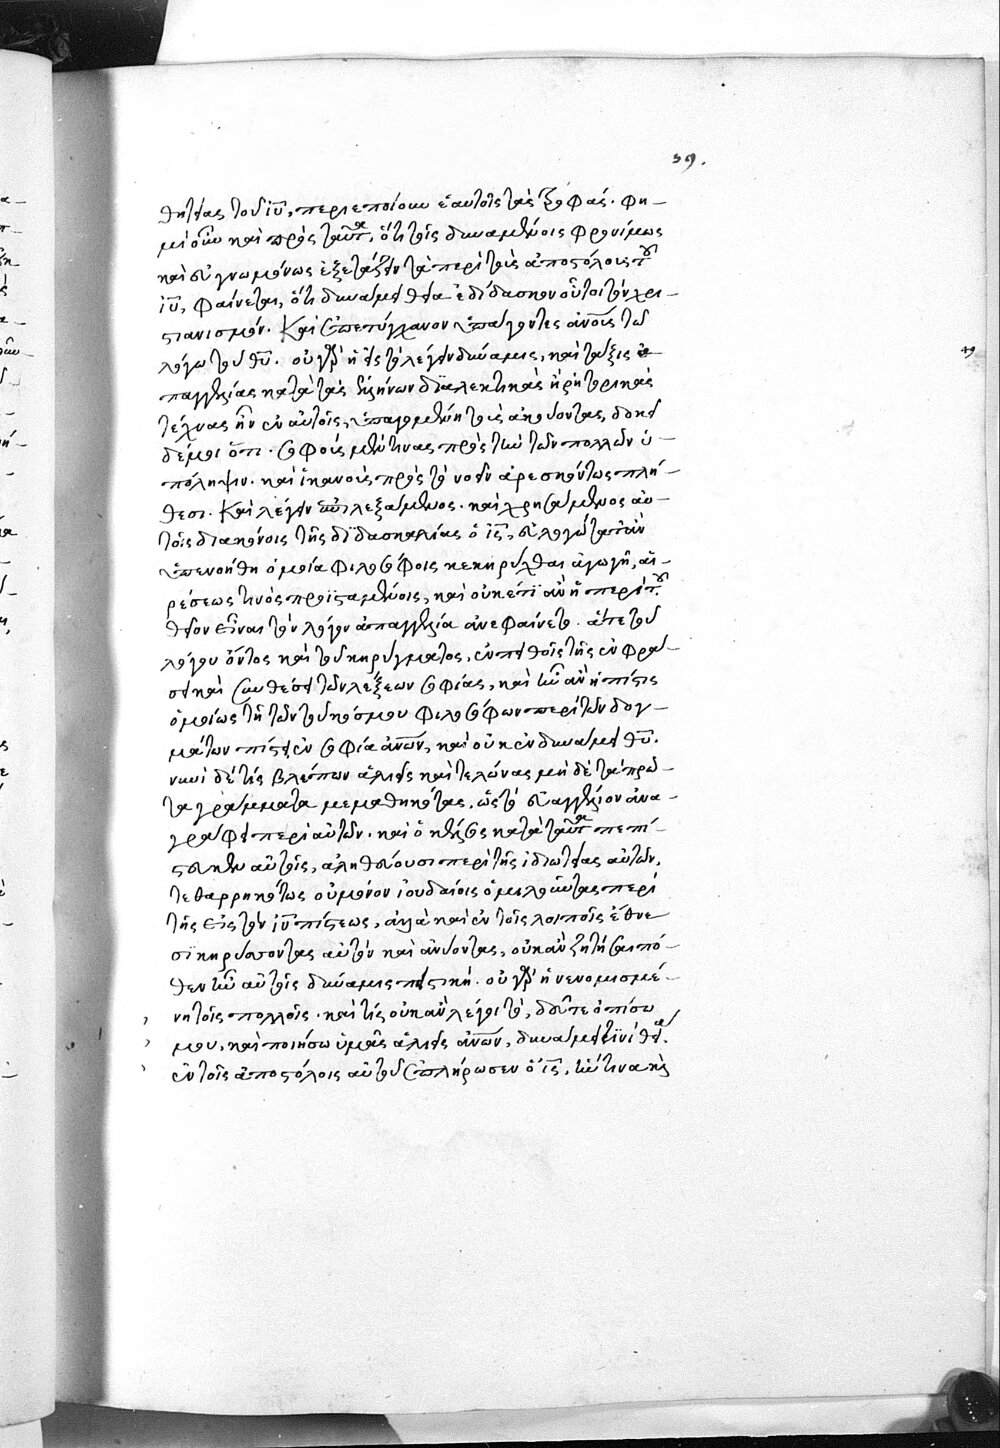 39.
θητὰς τοῦ ἰῦ, περιεποίουν ἑαυτοῖς τὰς τροφάς. φη-
μὶ οὖν καὶ πρὸς ταῦτα, ὅτι τοῖς δυναμένοις φρονίμως
καὶ εὐγνωμόνως ἐξετάζειν τὰ περὶ τοὺς ἀποστόλους τοῦ
ἰῦ, φαίνεται, ὅτι δυνάμει θεία ἐδίδασκον οὗτοι τὸν χρι-
στιανισμόν. καὶ ἐπετύγχανον ὑπάγοντες ἀνοὺς τῶ
λόγω τοῦ θῦ. οὐ γὰρ ἡ εἰς τὸ λέγειν δύναμις, καὶ τάξις ἐ-
παγγελίας κατὰ τὰς ἑλλήνων διαλεκτικὰς ἢ ῥητορικὰς
τέχνας ἦν ἐν αὐτοῖς, ὑπαγομένη τοὺς ἀκούοντας, δοκεῖ
δέ μοι ὅτι σοφοὺς μέν τινας πρὸς τὴν τῶν πολλῶν ὑ-
πόληψιν. καὶ ἱκανοὺς πρὸς τὸ νοεῖν ἀρεσκόντως πλή-
θεσι. καὶ λέγειν ἐπιλεξάμενος. καὶ χρησάμενος αὐ-
τοῖς διακόνοις τῆς διδασκαλίας ὁ ἰς, εὐλογώτατα ἂν
ὑπενοήθη ὁμοία φιλοσόφοις κεκηρύχθαι ἀγωγῆ, αἱ-
ρέσεώς τινος προϊσταμένοις, καὶ οὐκέτι ἂν ἡ περὶ τοῦ
θεῖον εἶναι τὸν λόγον ἀπαγγελία ἀνεφαίνετο. ἅτε τοῦ
λόγου ὄντος καὶ τοῦ κηρύγματος, ἐν πειθοῖ τῆς ἐν φρά-
σει καὶ συνθέσει τῶν λέξεων σοφίας, καὶ ἦν ἂν ἡ πίστις
ὁμοίως τῆ τῶν τοῦ κόσμου φιλοσόφων περὶ τῶν δογ-
μάτων πίστει ἐν σοφία ἀνων, καὶ οὐκ ἐν δυνάμει θῦ.
νυνὶ δέ τίς βλέπων ἁλιεῖς καὶ τελώνας μὴ δὲ τὰ πρῶ-
τα γράμματα μεμαθηκότας, ὡς τὸ εὐαγγέλιον ἀνα-
γράφει περὶ αὐτῶν. καὶ ὁ κέλσος κατὰ ταῦτα πεπί-
στευκεν αὐτοῖς, ἀληθεύουσι περὶ τῆς ἰδιωτείας αὐτῶν,
τεθαρρηκότως οὐ μόνον ἰουδαίοις ὁμιλοῦντας περὶ
τῆς εἰς τὸν ἰν πίστεως, ἀλλὰ καὶ ἐν τοῖς λοιποῖς ἔθνε
σι κηρύσσοντας αὐτὸν καὶ ἀνύοντας, οὐκ ἂν ζητήσαι πό-
θεν ἦν αὐτοῖς δύναμις πειστική. οὐ γὰρ ἡ νενομισμέ-
νη τοῖς πολλοῖς. καὶ τίς οὐκ ἂν λέγοι τὸ, δεῦτε ὀπίσω
μου, καὶ ποιήσω ὑμᾶς ἁλιεῖς ἀνων, δυνάμει τινὶ θεία
ἐν τοῖς ἀποστόλοις αὐτοῦ ἐπλήρωσεν ὁ ἰς, ἥν τινα καὶ